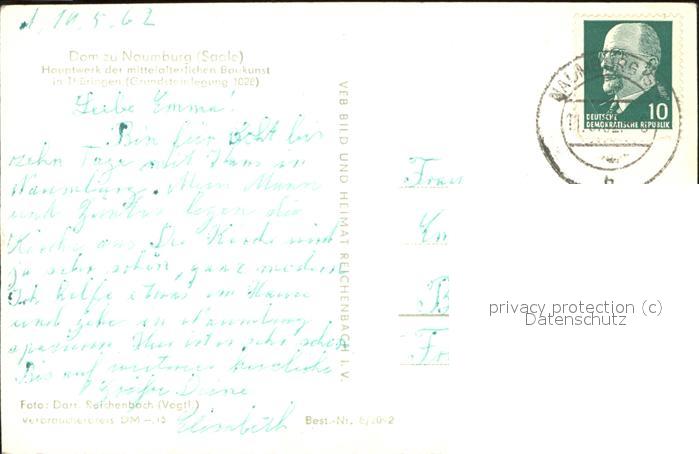 10.5.62
Dom zu Naumburg (Saale)
Hauptwerk der mittelalterlichen Baukunst
in Thüringen (Grundsteinlegung 1028)
Liebe Emma!
Bin für acht bis
zehn Tage mit Hans in
Naumburg. Mein Mann
und Günther legen die
Kirche aus. Die Kirche wird
ja sehr schön, ganz modern
Ich helfe etwas im Hause
und gehe in Naumburg
spazieren. Hier ist es sehr schön
Bis auf weiteres herzliche
Grüße Deine
Elisabeth
Foto: Darr, Reichenbach (Vogtl.)
Verbraucherpreis DM -,15
Best.-Nr.
VEB BILD UND HEIMAT REICHENBACH I. V.
DEUTSCHE
DEMOKRATISCHE REPUBLIK
10
NAUMBURG
b
Frau
Em
B
Fr
privacy protection (c)
Datenschutz